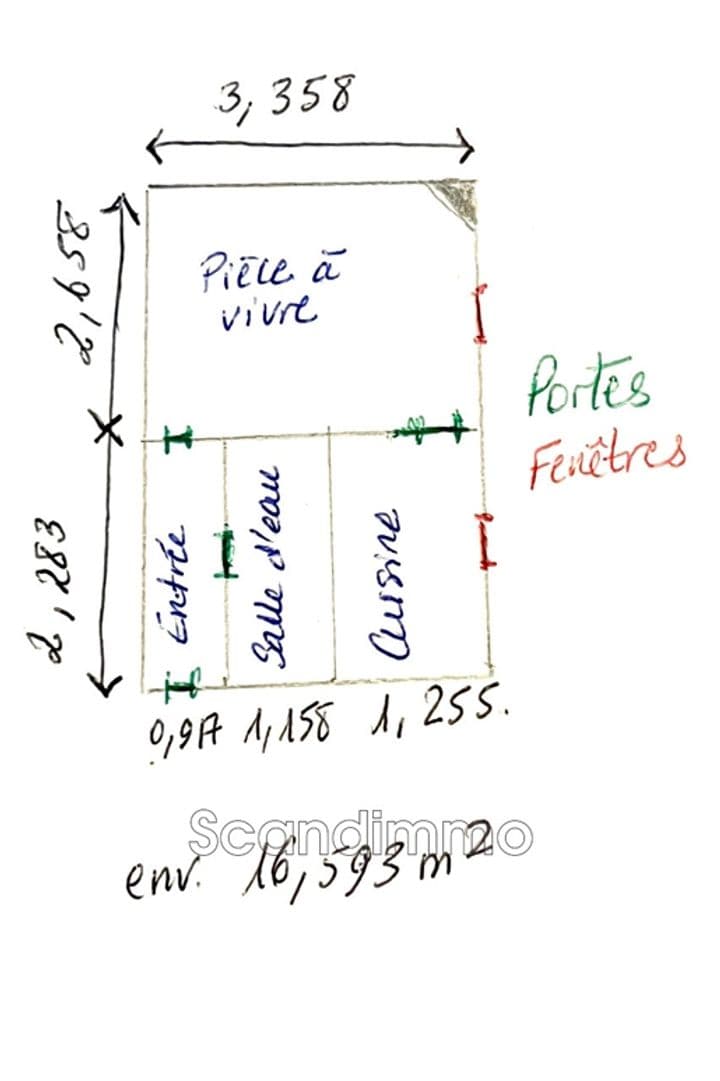 3,358
2,658
Pièce à
vivre
Portes
Fenêtres
2,283
Entrée
Salle d'eau
Cuisine
0,917 1,158 1,255.
Scandimmo
env. 16,593 m²